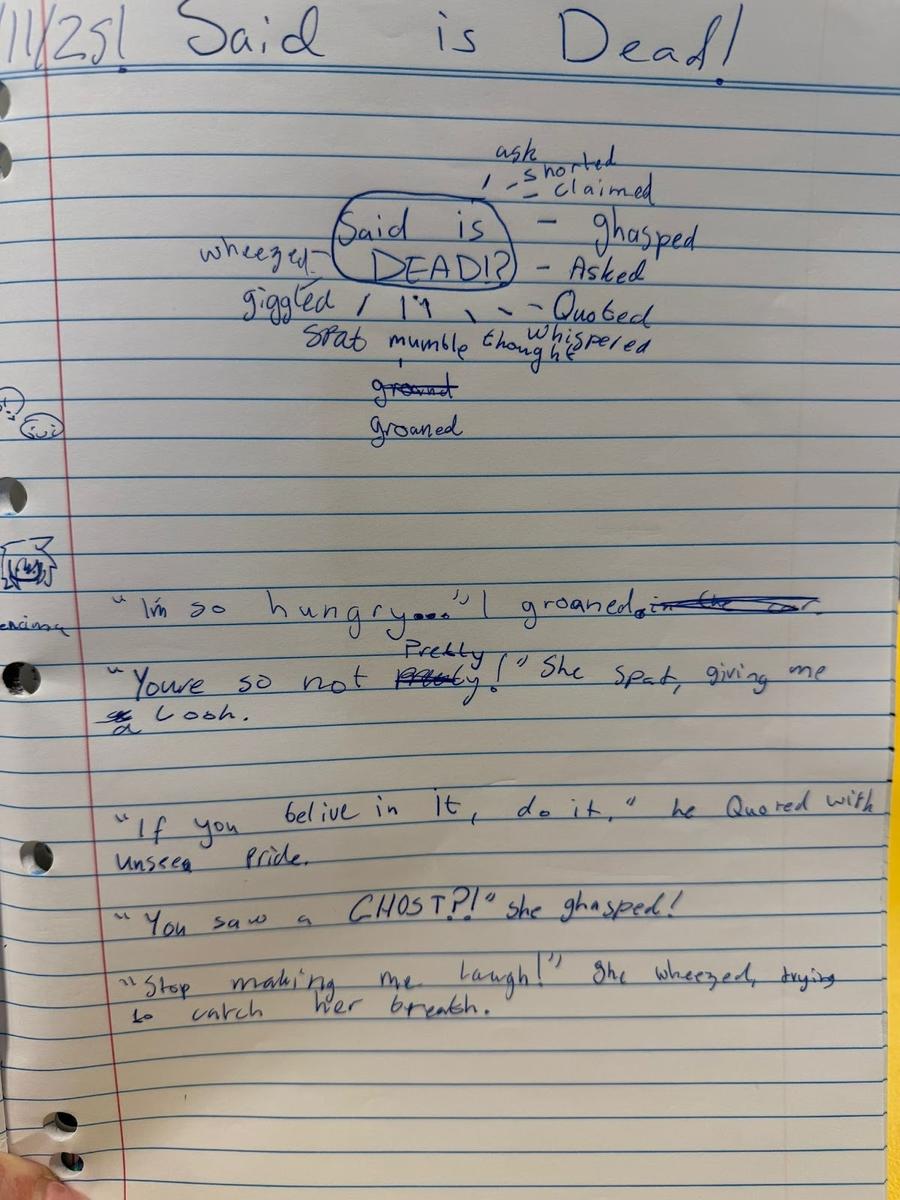 /11/25! Said is Dead!
ask
shorted
claimed
Said is - ghasped
wheezed- DEAD!? - Asked
giggled - Quoted
spat mumble thought whispered
ground
groaned
"I'm so hungry..." I groaned.
Pretty
"Youre so not y!" She spat, giving me
a Look.
"If you belive in it, do it," he Quored with
unseen Pride.
"You saw a GHOST?!" she ghasped!
"Stop making me laugh!" She wheezed, trying
to catch her breath.